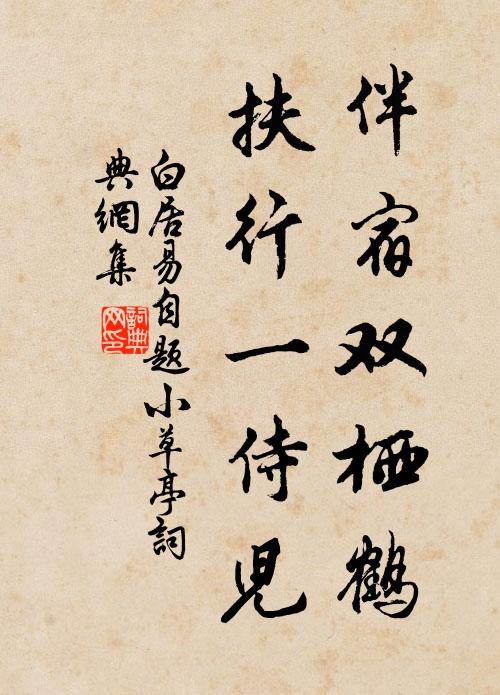 伴宿双栖鹤
扶行一侍儿
白居易自题小草亭詞
典網集
詞典网印